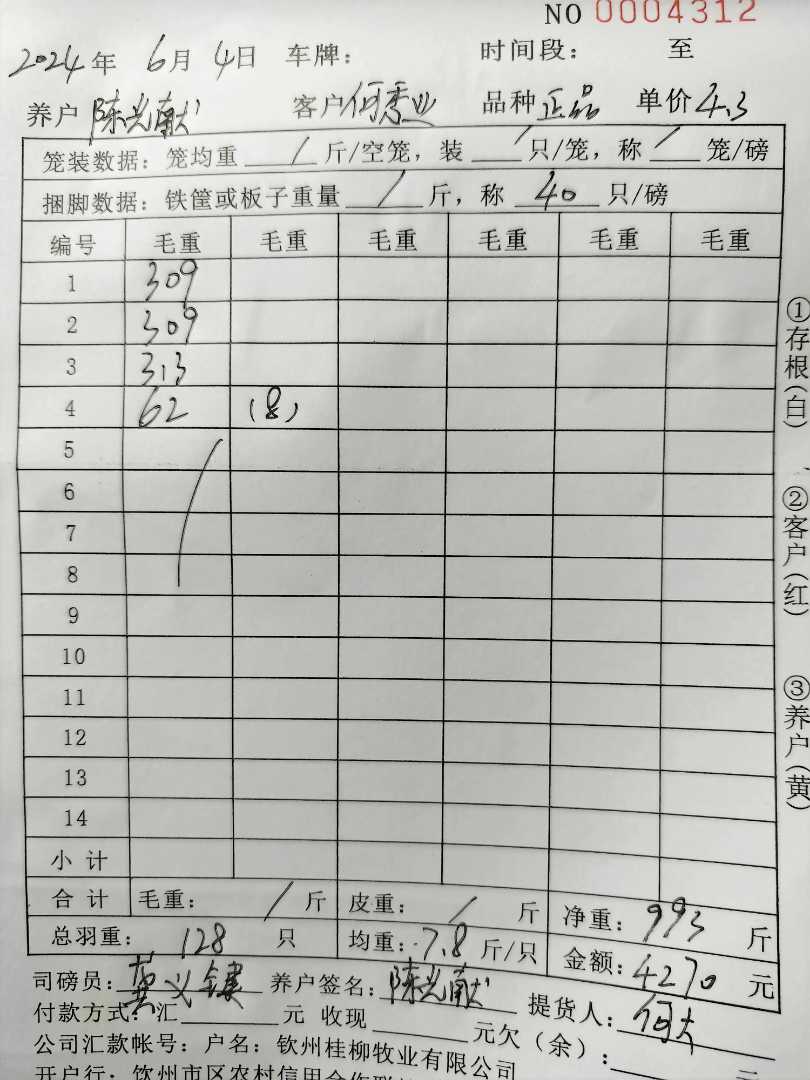 NO 0004312
2024年 6月 4日 车牌: 时间段: 至
养户 陈光献 客户 何秀业 品种 正品 单价 4.3
笼装数据: 笼均重 / 斤/空笼, 装 / 只/笼, 称 / 笼/磅
捆脚数据: 铁筐或板子重量 / 斤, 称 40 只/磅
编号 毛重 毛重 毛重 毛重 毛重 毛重
1 309
2 309
3 313
4 62 (8)
5
6
7
8
9
10
11
12
13
14
小计
合计 毛重: / 斤 皮重: / 斤 净重: 993 斤
总羽重: 128 只 均重: 7.8 斤/只 金额: 4270 元
司磅员: 义 养户签名: 陈光献 提货人: 何大
付款方式: 汇 元 收现 元欠(余):
公司汇款帐号: 户名: 钦州桂柳牧业有限公司
开户行: 钦州市区农村信用合作联
①存根(白)
②客户(红)
③养户(黄)